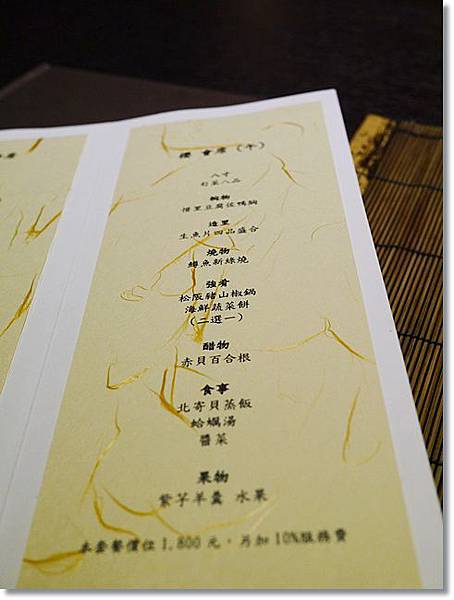 櫻 會席（午）
八寸
旬菜八品
椀物
生魚片四品盛合
燒物
鱒魚新綠燒
強肴
松阪豬山椒鍋
海鮮蔬菜餅
（二選一）
醋物
赤貝百合根
食事
北寄貝蒸飯
蛤蠣湯
醬菜
果物
紫芋羊羹 水果
本套餐價位1,800元，另加10%服務費
席